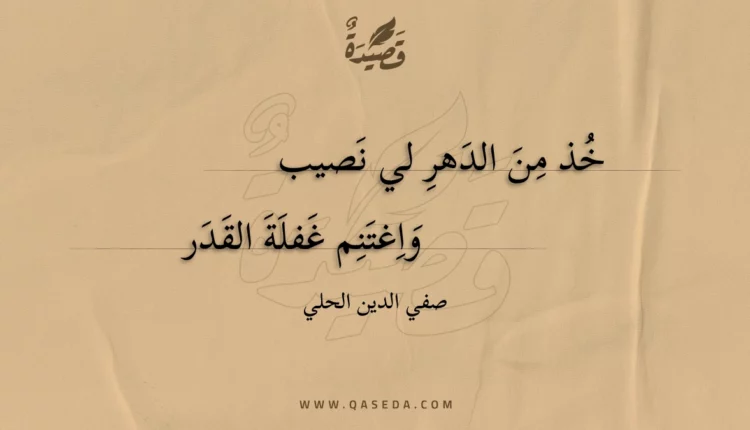 قَصِيْدَةٌ
خُذ مِنَ الدَهرِ لي نَصيب
وَاِغتَنِم غَفلَةَ القَدَر
صفي الدين الحلي
WWW.QASEDA.COM